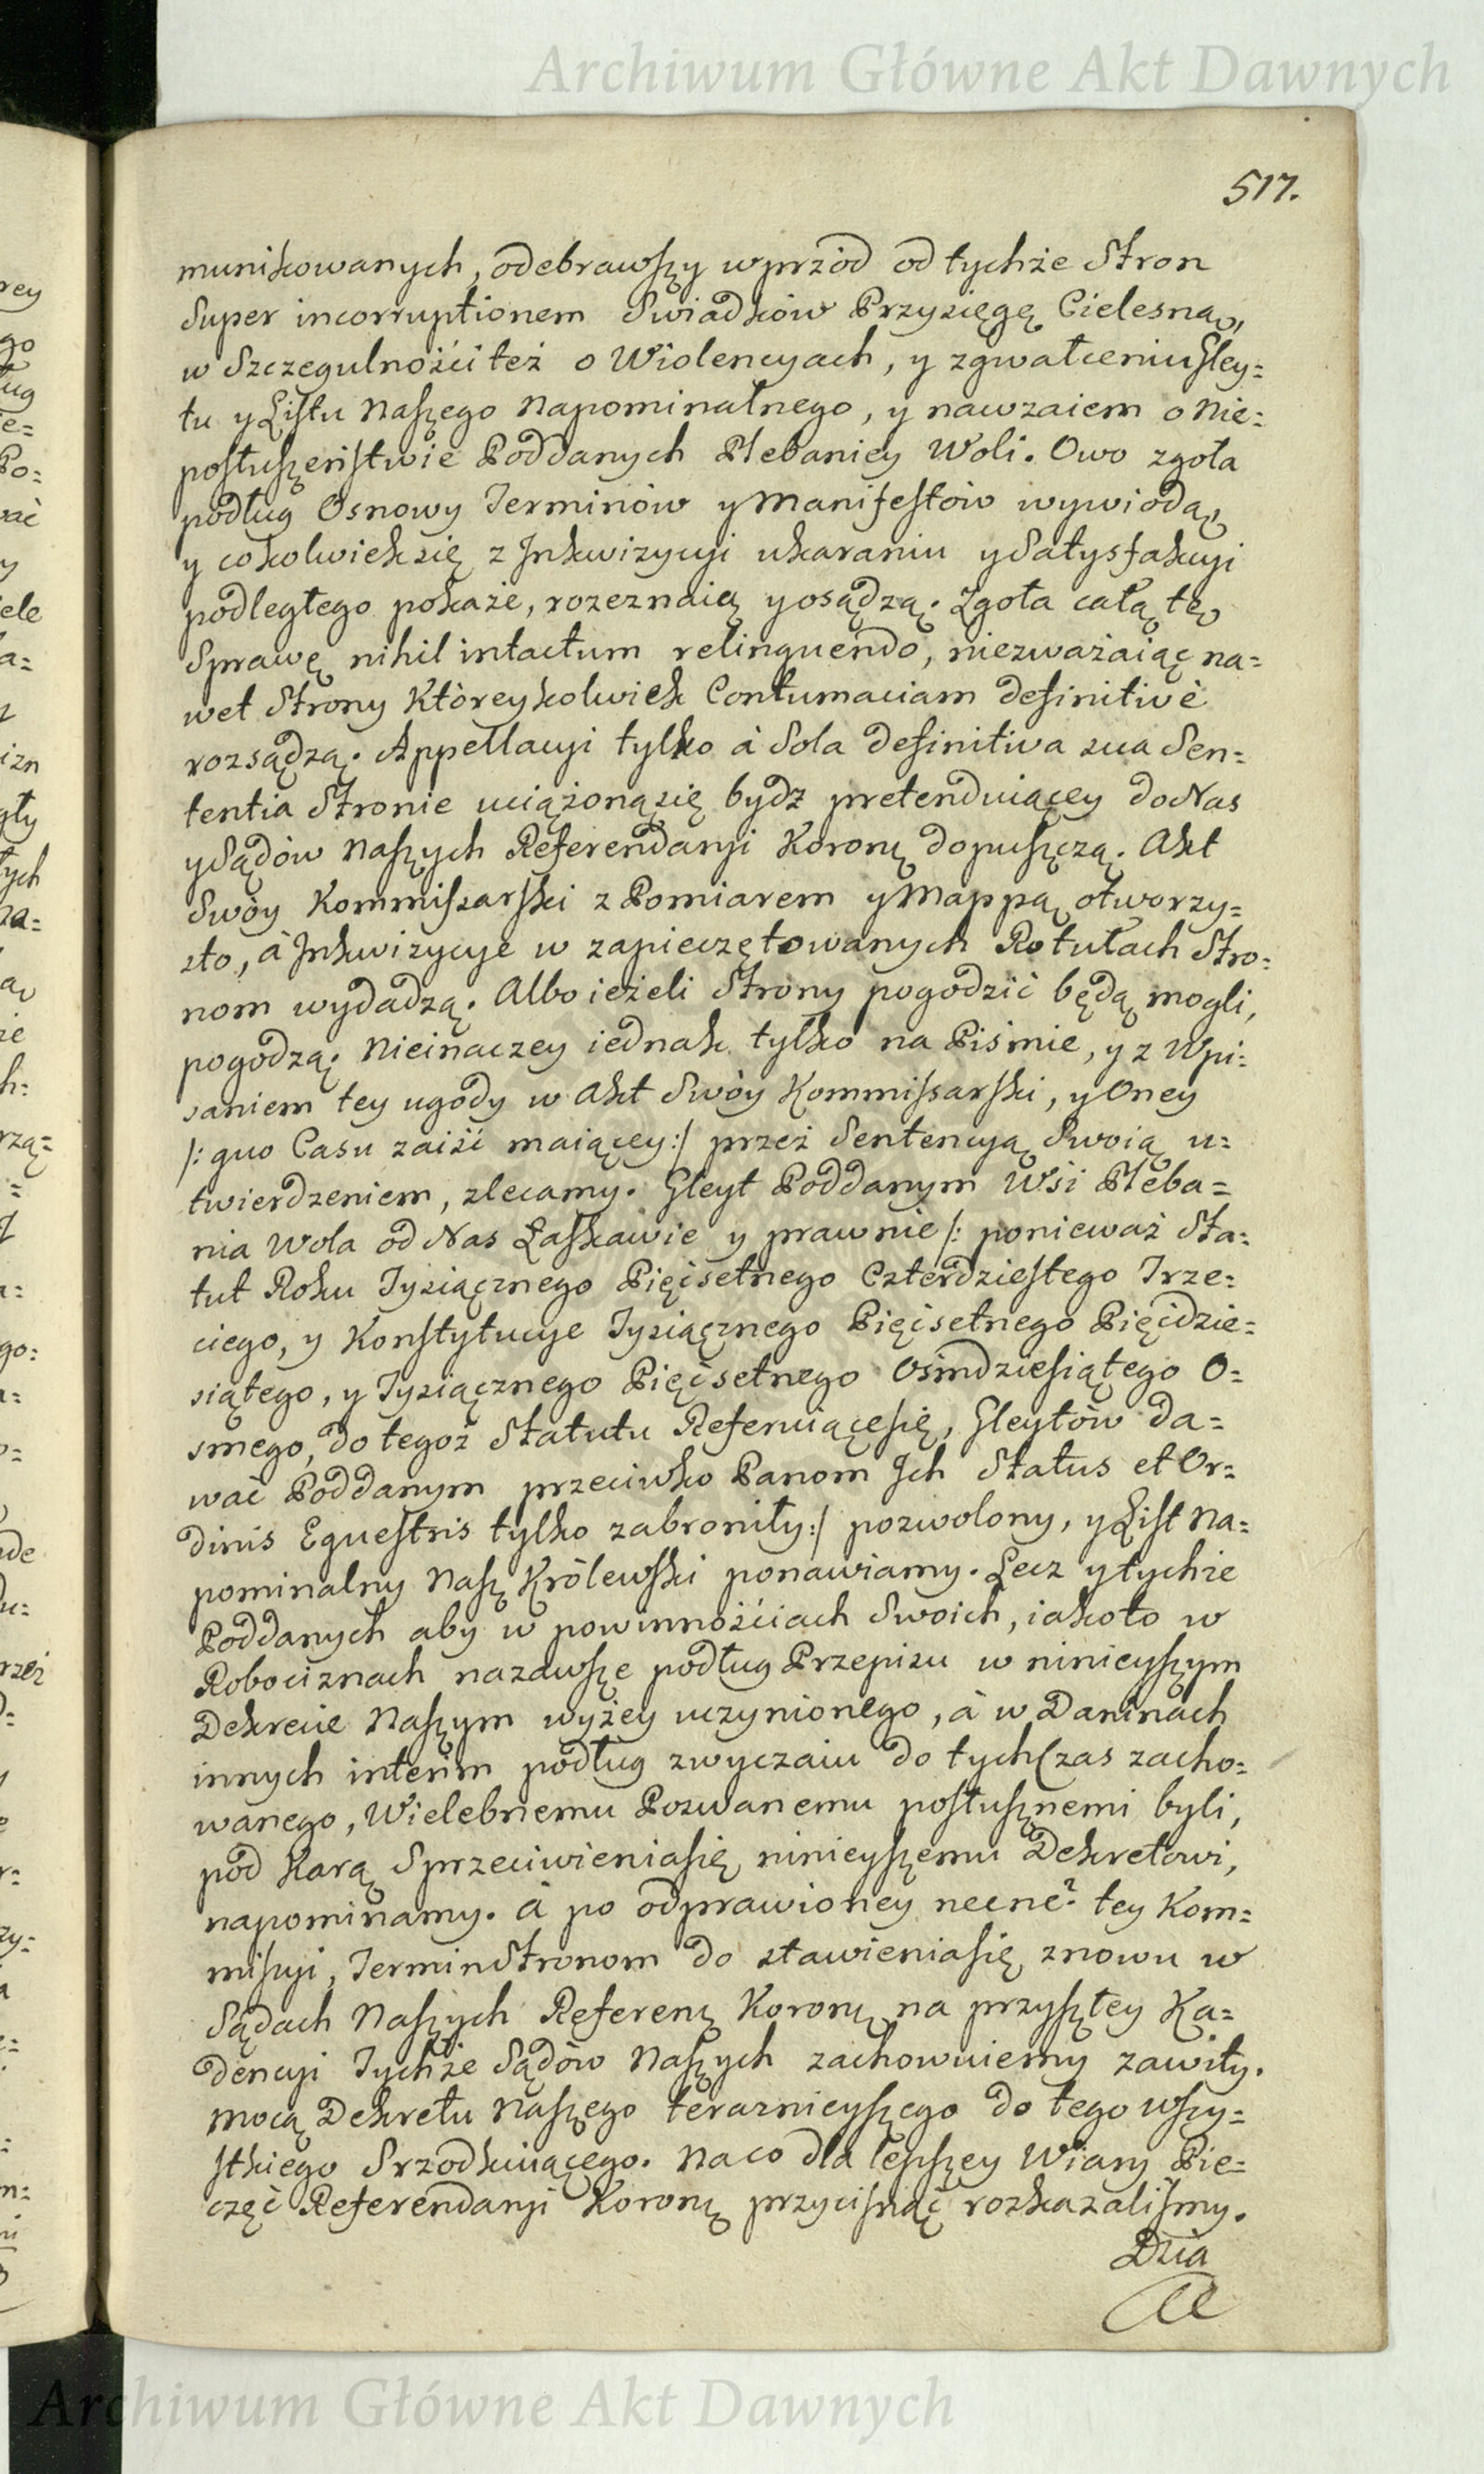 Archiwum Główne Akt Dawnych
517.
munikowanych, odebrawszy wprzód od tychże Stron
Super incorruptionem Swiadków Przysięgę Cielesną,
w Szczegulności też o Wiolencyach, y zgwałceniu Gley=
tu y Listu Naszego Napominalnego, y nawzaiem o Nie=
posłuszeństwie Poddanych Plebaniey Woli. Owo zgoła
podług Osnowy Terminów y Manifestów wywiodą,
y cokolwiek się z Inkwizycyi ukaraniu y Satysfakcyi
podległego pokaże, rozeznaią y osądzą. Zgoła całą tę
Sprawę nihil intactum relinquendo, niezważaiąc na=
wet Strony Któreykolwiek Contumaciam definitivè
rozsądzą. Appellacyi tylko à Sola definitiva sua Sen=
tentia Stronie uciążoną się bydź pretenduiącey do Nas
y Sądów Naszych Referendaryi Koronę dopuszczą. Akt
Swóy Kommissarski z Pomiarem y Mappą otworzy=
sto, à Inkwizycye w zapieczętowanych Rotułach Stro=
nom wydadzą. Albo ieżeli Strony pogodzić będą mogli,
pogodzą. Nieinaczey iednak tylko na Piśmie, y z Wpi=
saniem tey ugody w Akt Swóy Kommissarski, y Oney
/: quo Casu zaiść maiącey :/ przez Sentencyą Swoią u=
twierdzeniem, zlecamy. Gleyt Poddanym Wsi Pleba=
nia Wola od Nas Łaskawie y prawnie /: ponieważ Sta=
tut Roku Tysiącznego Pięćsetnego Czterdziestego Trze=
ciego, y Konstytucye Tysiącznego Pięćsetnego Pięćdzie=
siątego, y Tysiącznego Pięćsetnego Ośmdziesiątego O=
smego, do tegoż Statutu Referuiące się, Gleytów da=
wać Poddanym przeciwko Panom Ich Status et Or=
dinis Equestris tylko zabroniły :/ pozwolony, y List Na=
pominalny Nasz Królewski ponawiamy. Lecz y tychże
Poddanych aby w powinnościach Swoich, iakoto w
Robociznach nazawsze podług Przepisu w ninieyszym
Dekrecie Naszym wyżey uczynionego, à w Daninach
innych interim podług zwyczaiu do tychczas zacho=
wanego, Wielebnemu Pozwanemu posłusznemi byli,
pod Karą Sprzeciwienia się ninieyszemu Dekretowi,
napominamy. à po odprawioney necne? tey Kom=
missyi, Termin Stronom do stawienia się znowu w
Sądach Naszych Referenę Koronę na przyszłey Ka=
dencyi Tychże Sądów Naszych zachowuiemy zawity.
Mocą Dekretu Naszego teraznieyszego do tego wszy=
stkiego Srzodkuiącego. Na co dla lepszey Wiary Pie=
częć Referendaryi Koronę przycisnąć rozkazaliśmy.
Dzia
Archiwum Główne Akt Dawnych